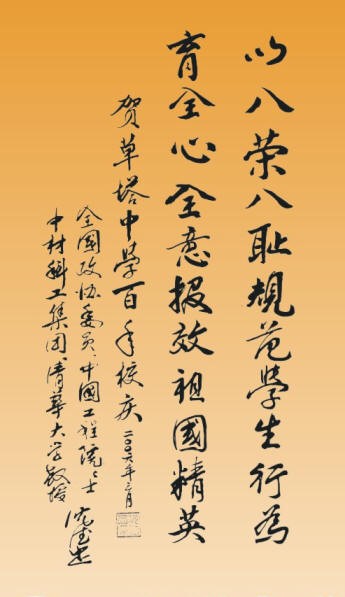 以八荣八耻规范學生行为
育全心全意报效祖國精英
贺草塔中学百年校庆 二〇〇六年三月
全國政协委员、中國工程院院士
中材科工集团、清華大学教授
沈德忠